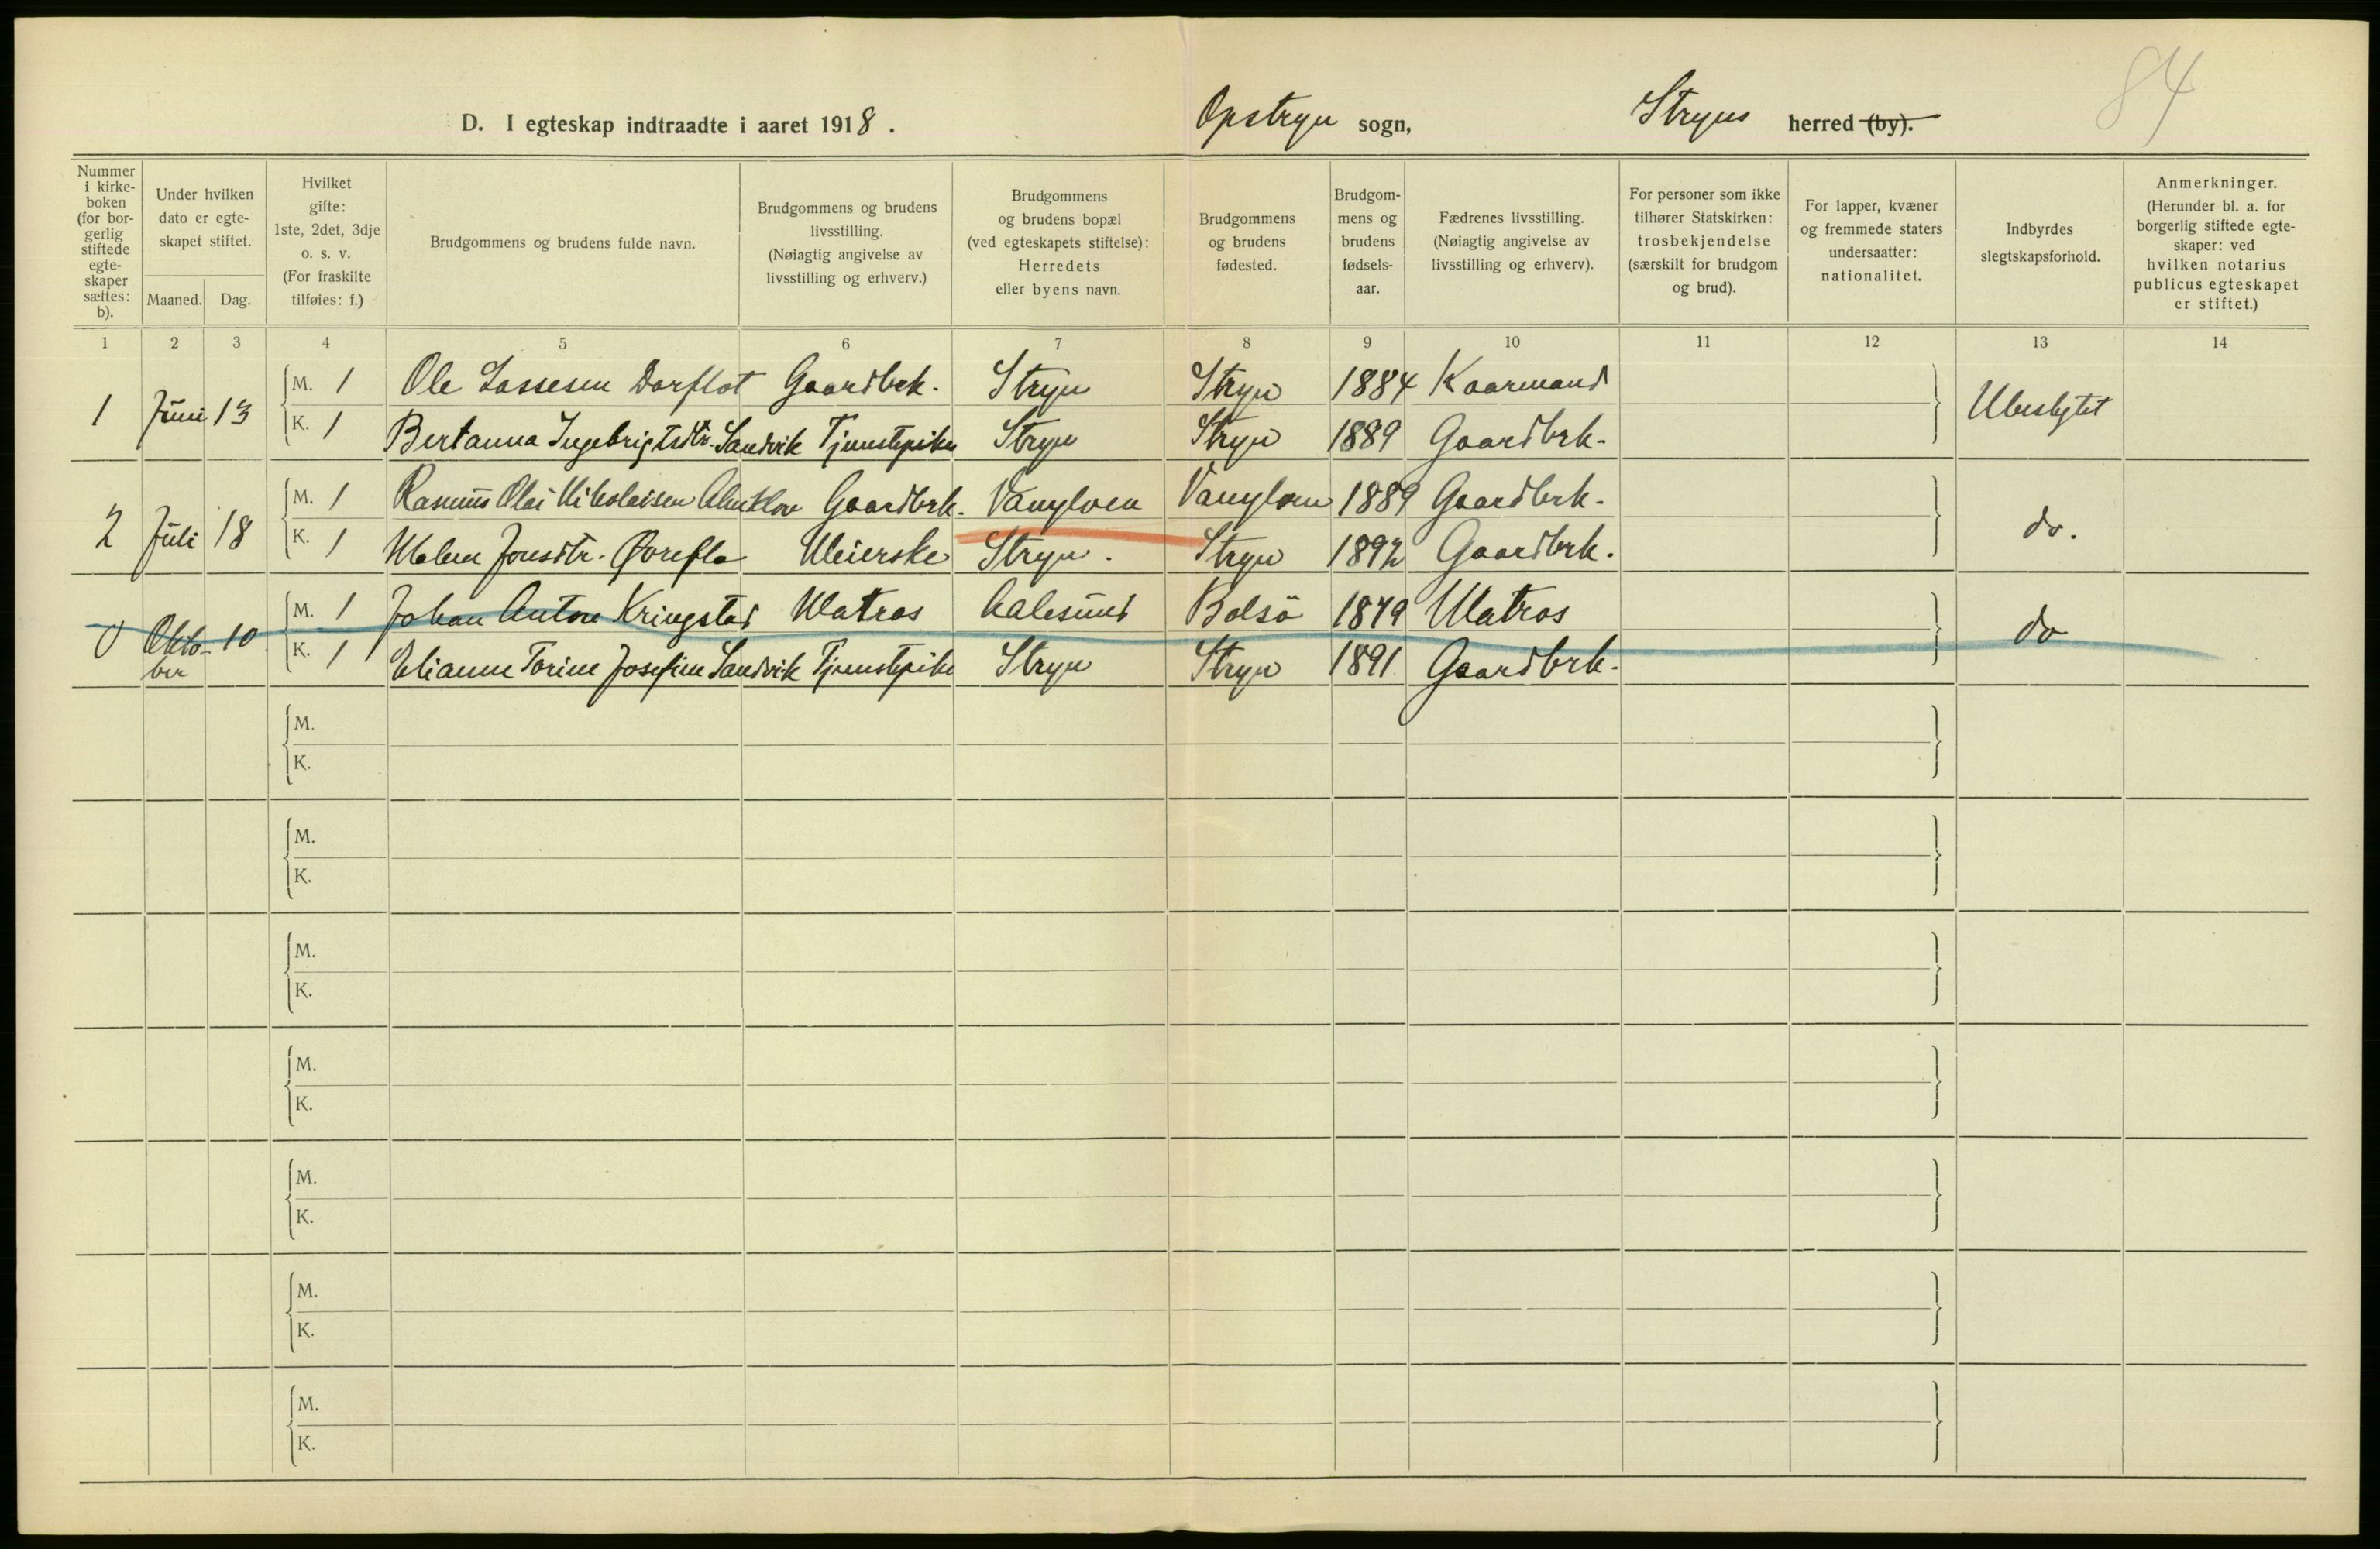 84
D. I egteskap indtraadte i aaret 1918. Opstryn sogn, Stryns herred (by).
Nummer i kirke-boken (for bor-gerlig stiftede egte-skaper sættes: b).
Under hvilken dato er egte-skapet stiftet.
Maaned. Dag.
Hvilket gifte: 1ste, 2det, 3dje o. s. v. (For fraskilte tilføies: f.)
Brudgommens og brudens fulde navn.
Brudgommens og brudens livsstilling. (Nøiagtig angivelse av livsstilling og erhverv.)
Brudgommens og brudens bopæl (ved egteskapets stiftelse): Herredets eller byens navn.
Brudgommens og brudens fødested.
Brudgom-mens og brudens fødsels-aar.
Fædrenes livsstilling. (Nøiagtig angivelse av livsstilling og erhverv).
For personer som ikke tilhører Statskirken: trosbekjendelse (særskilt for brudgom og brud).
For lapper, kvæner og fremmede staters undersaatter: nationalitet.
Indbyrdes slegtskapsforhold.
Anmerkninger. (Herunder bl. a. for borgerlig stiftede egte-skaper: ved hvilken notarius publicus egteskapet er stiftet.)
1 2 3 4 5 6 7 8 9 10 11 12 13 14
M. 1 Ole Lassesen Dorflot Gaardbrk. Stryn Stryn 1884 Kaarmand
1 Juni 13 Ubeslegtet
K. 1 Bertanna Ingebrigtsdtr. Sandvik Tjenestepike Stryn Stryn 1889 Gaardbrk.
M. 1 Rasmus Olai Nikolaisen Almklov Gaardbrk. Vanylven Vanylven 1889 Gaardbrk.
2 Juli 18 do.
K. 1 Malene Jonsdtr. Øvreflo Meierske Stryn. Stryn 1892 Gaardbrk.
M. 1 Johan Anton Kringstad Matros Aalesund Bolsö 1879 Matros
0 Okto-ber 10 do
K. 1 Elianne Torine Josefine Sandvik Tjenestepike Stryn Stryn 1891 Gaardbrk.
M.
K.
M.
K.
M.
K.
M.
K.
M.
K.
M.
K.
M.
K.